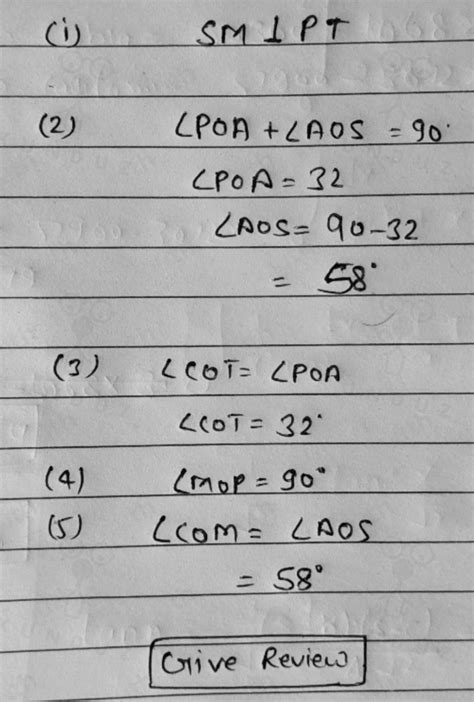 (i) SM ⊥ PT
(2) ∠POA + ∠AOS = 90°
∠POA = 32
∠AOS = 90-32
= 58°
(3) ∠COT = ∠POA
∠COT = 32°
(4) ∠MOP = 90°
(5) ∠COM = ∠AOS
= 58°
Give Review